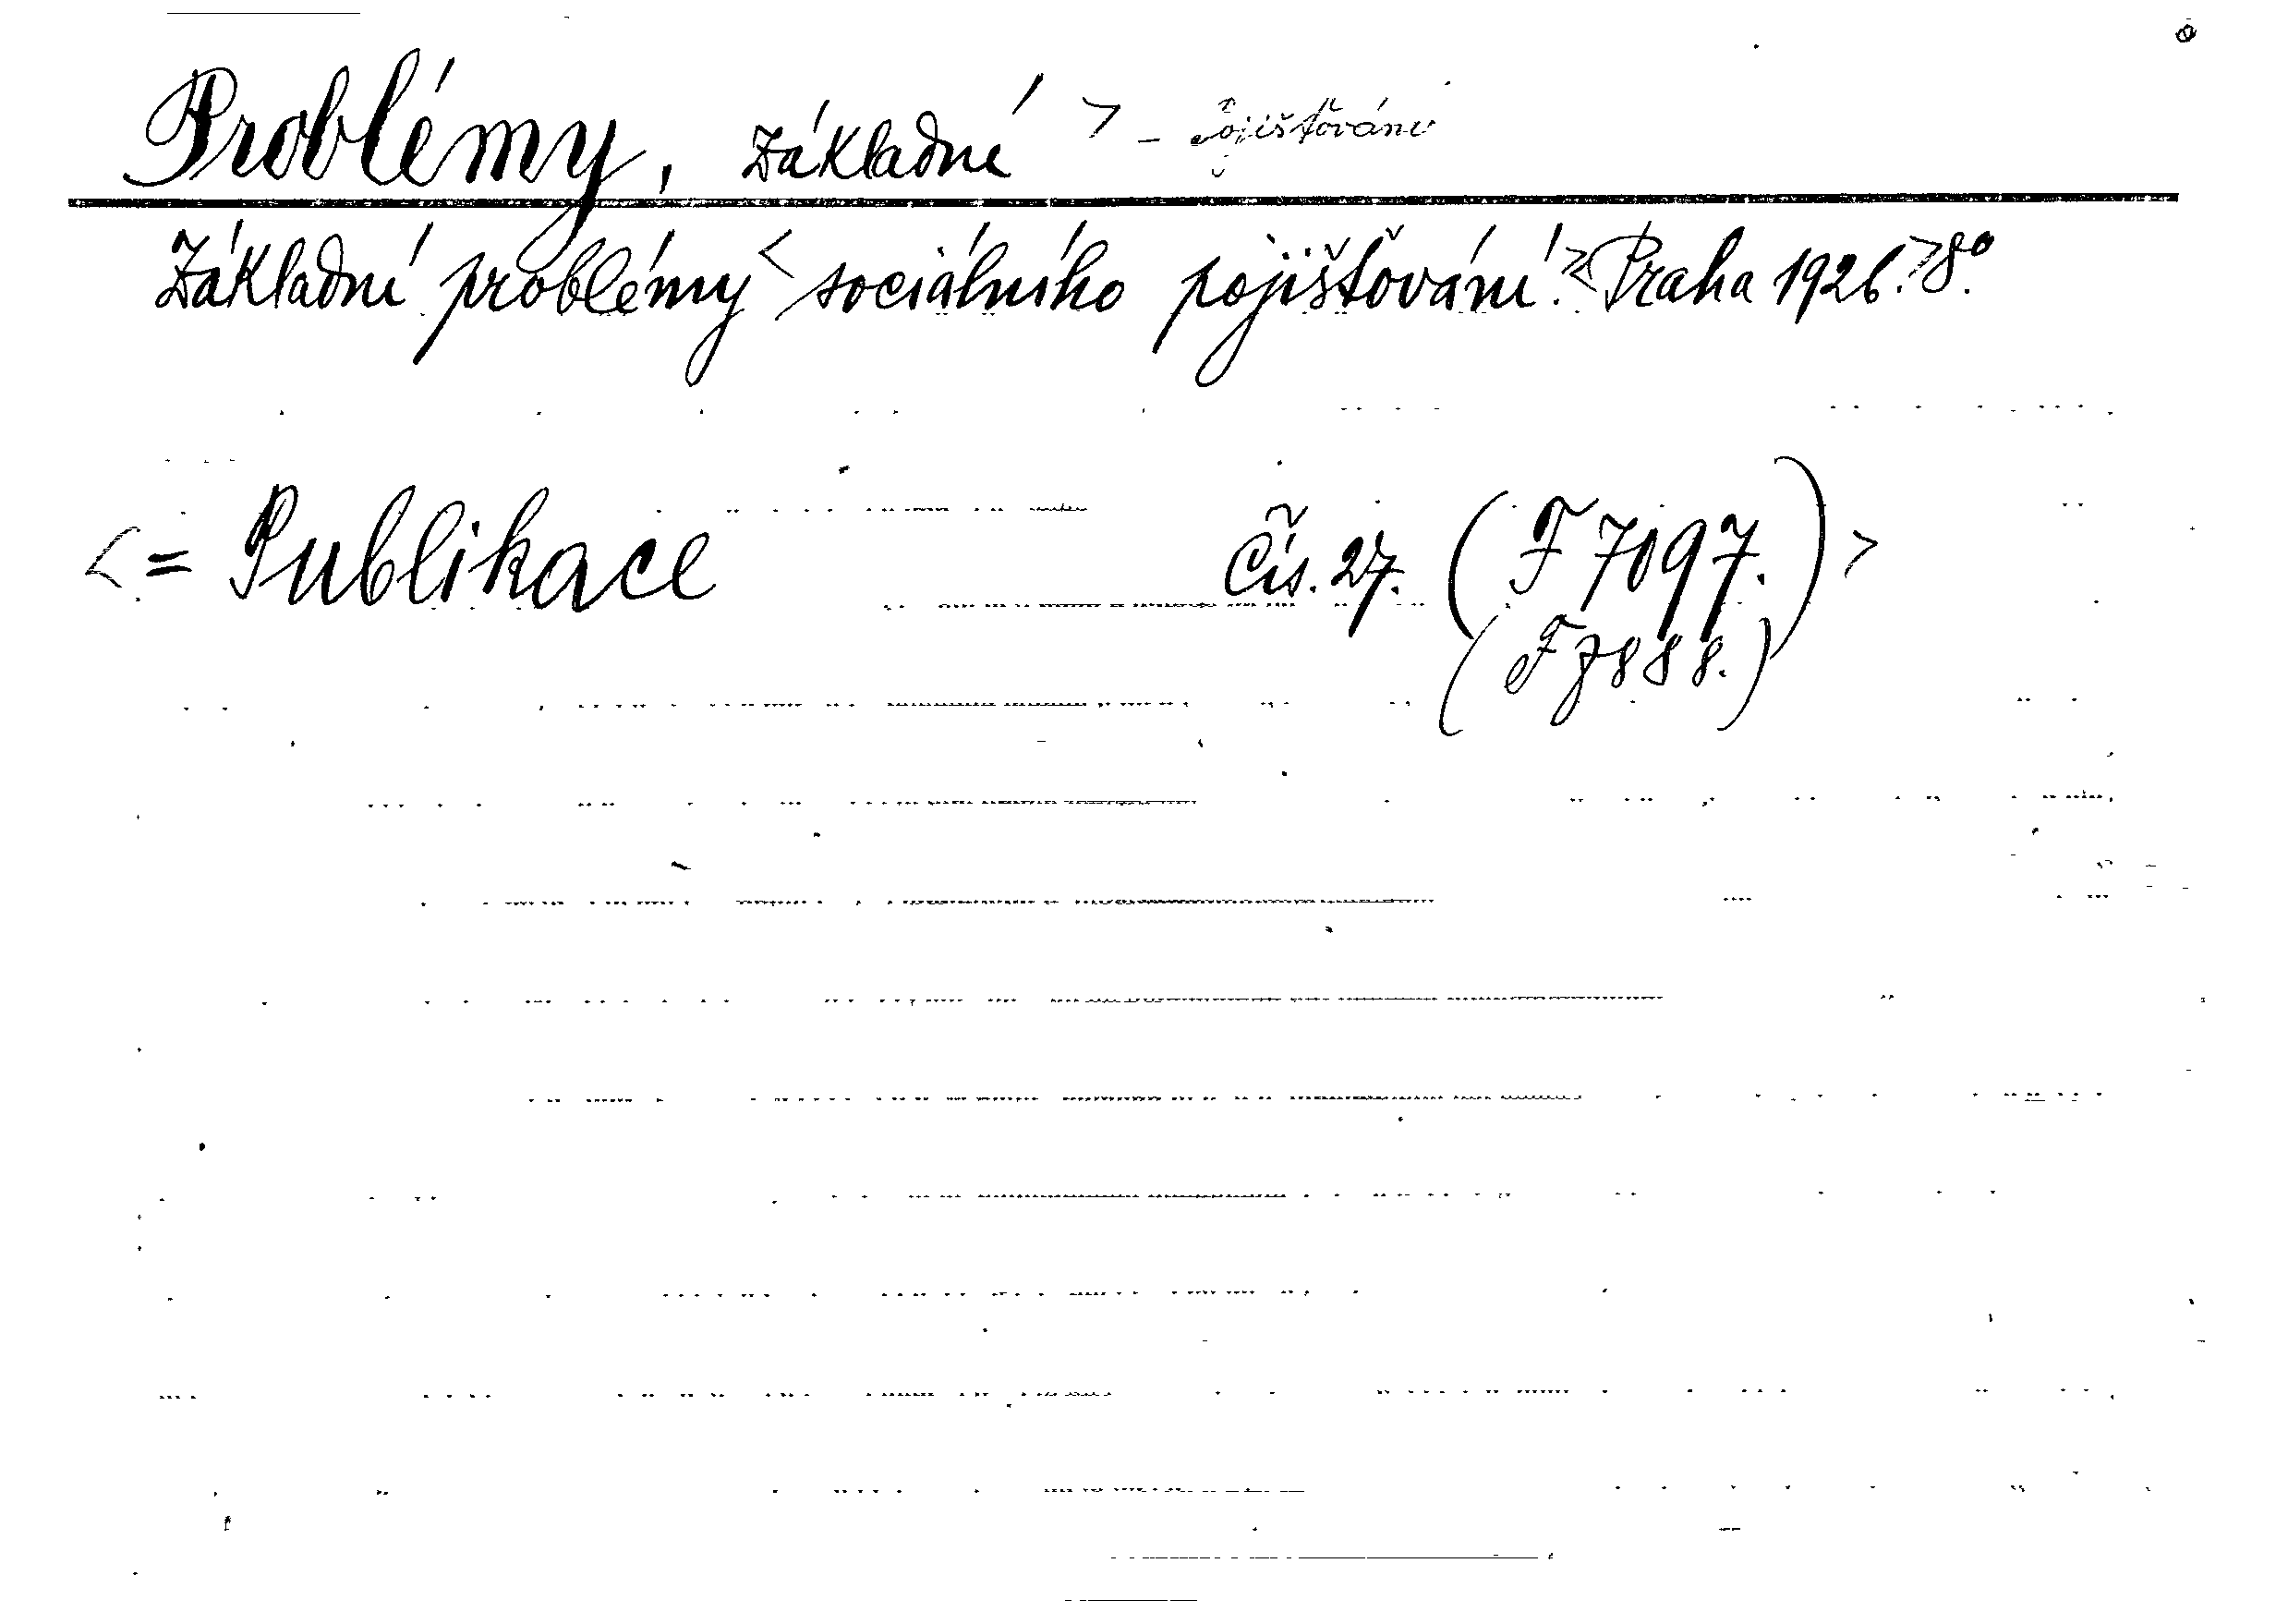 Problémy, základní > - Pojišťování
Základní problémy < sociálního pojišťování. > < Praha 1926. > 8°.
< = Publikace Čís. 27. (F 7097.) >
(F 7888.)